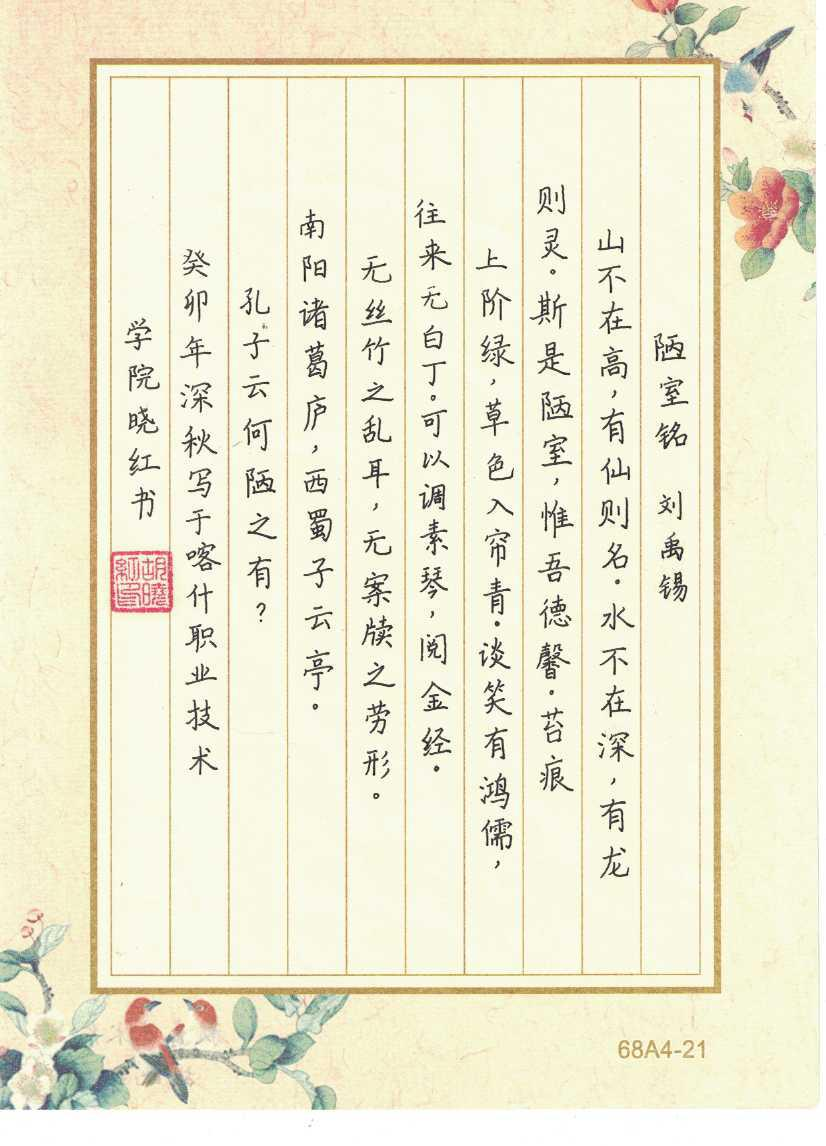 陋室铭 刘禹锡
山不在高，有仙则名。水不在深，有龙
则灵。斯是陋室，惟吾德馨。苔痕
上阶绿，草色入帘青。谈笑有鸿儒，
往来无白丁。可以调素琴，阅金经。
无丝竹之乱耳，无案牍之劳形。
南阳诸葛庐，西蜀子云亭。
孔子云何陋之有？
癸卯年深秋写于喀什职业技术
学院晓红书
胡曉紅印
68A4-21